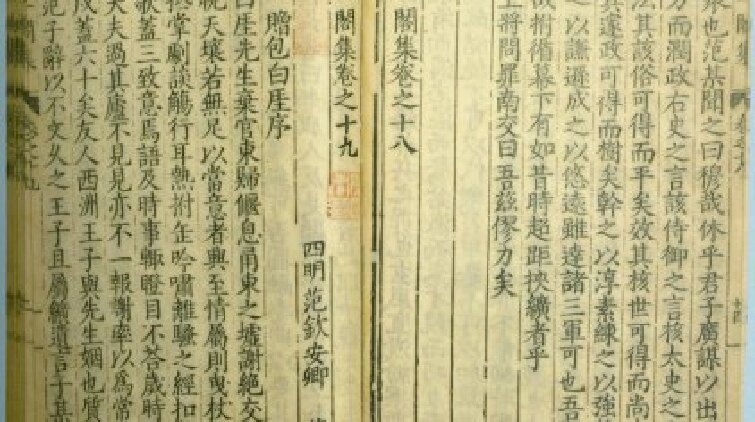 泉也范某聞之曰穆哉休乎君子廣謀以出
方而潤政右史之言該侍御之言核太史之
法其該俗可得而平矣效其核世可得而尚
其遠政可得而樹矣幹之以淳素練之以強
之以謙遜成之以悠遠雖達諸三軍可也吾
故拊循幕下有如昔時超距挾纊者乎
上將問罪南交曰吾兹僇力矣
閣集卷之十八
閣集卷之十九
四明范欽安卿
贈包白厓序
白厓先生棄官東歸偃息甬東之墟謝絶交
視天壤若無足以當意者興至情屬則曳杖
抵掌劇談觴行耳熱拊缶吟嘯離騷之經扣
歌蓋三致意焉語及時事輙瞪目不答歲時
大夫過其廬不見見亦不一報謝率以為常
戊蓋六十矣友人西洲王子與先生姻也質
范子辭以不文久之王子且屬纊遺言于其